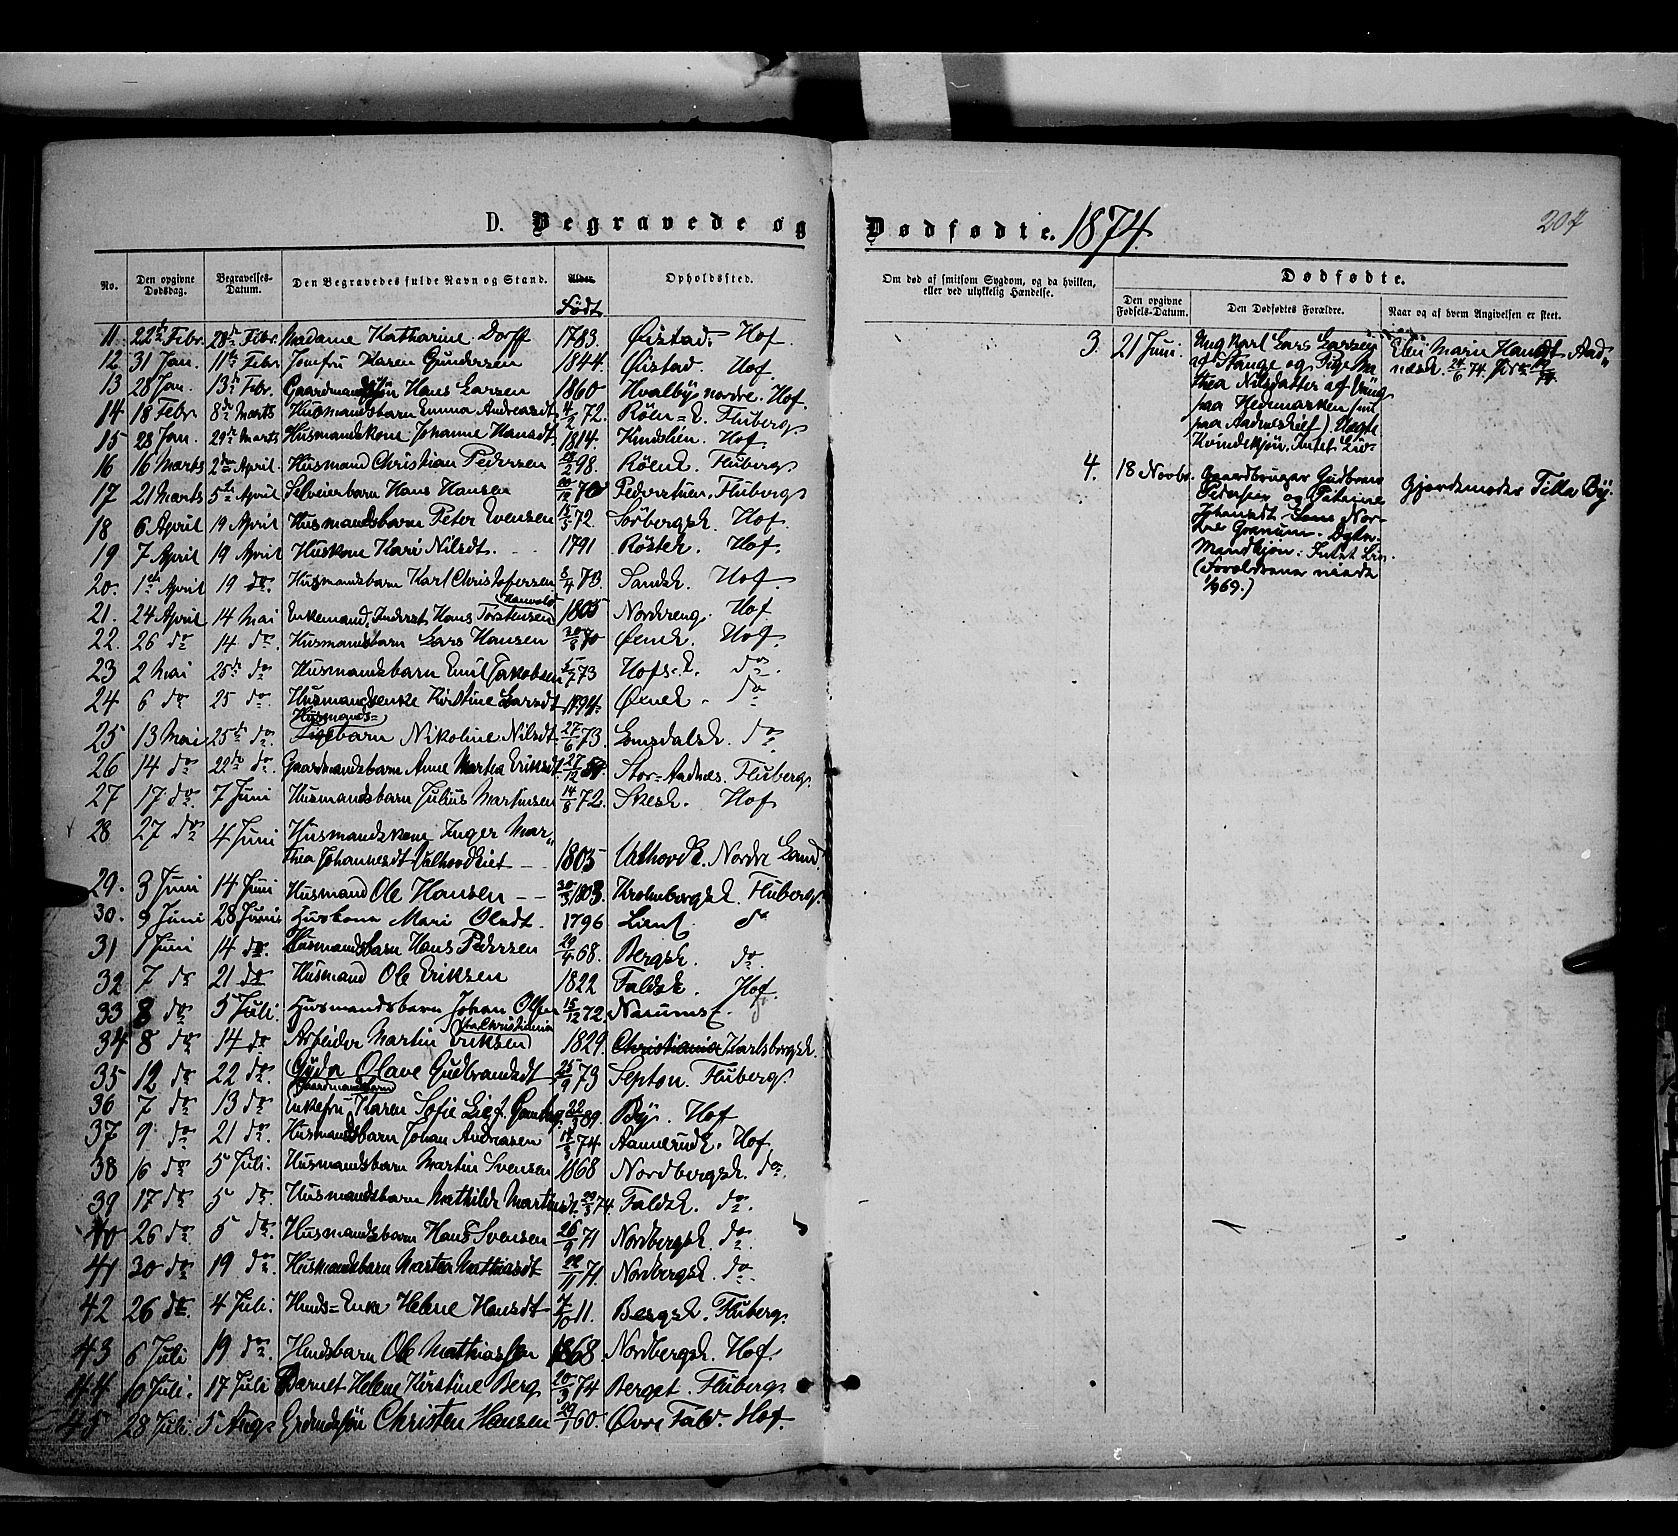 D. Begravede og Dødfødte. 1874.
207
No. Den opgivne Dødsdag. Begravelses-Datum. Den Begravedes fulde Navn og Stand. Alder. Født Opholdssted.
Om død af smitsom Sygdom, og da hvilken, eller ved ulykkelig Hændelse.
Dødfødte.
Den opgivne Fødsels-Datum. Den Dødfødtes Forældre. Naar og af hvem Angivelsen er skeet.
11 22de Febr. 28de Febr. Madame Katharine Dorff 1783. Øistad. Hof.
12 31 Jan. 11te Febr Jomfru Karen Gundersen 1844. Øistad. Hof.
13 28 Jan. 13de Febr. Gaardmandssøn Hans Larsen 1860 Hvalby nordre. Hof.
14 18 Febr 8de Marts Husmandsbarn Emma Andreasdt 4/2 72. Røen=E. Fluberg.
15 28 Jan. 29de Marts Husmandskone Johanne Hansdt. 1814. Kindslien. Hof.
16 16 Marts 2den April. Husmand Christian Pedersen 98. Røene. Fluberg.
17 21 Marts 5te April Selveierbarn Hans Hansen 70 Pederstuen. Fluberg.
18 6 April 19 April Husmandsbarn Peter Evensen 15/3 72. Sørbergsk. Hof.
19 7 April 19 April Huskone Kari Nilsdt. 1791 Røstek. Hof.
20. 1ste April 19 do. Husmandsbarn Karl Christofersen 5/4 73 Sandsk. Hof
21. 24 April 14 Mai Enkemand, Inderst Hans Torstensen 1805 Nordreeng. Hof
22. 26 do 14 do. Husmandsbarn Lars Hansen 70 Øenek. Hof.
23 2 Mai 25de do Husmandsbarn Emil Jakobsen 73 Hofs.E. do.
24 6 do 25 do. Husmandsenke Kirstine Larsdt 1794. Øenek. do
Husmands=
25 13 Mai 25de do. Pigebarn Nikoline Nilsdt. 27/6 73. Lomsdalsk. do
26 14 do 22de do. Gaardmandsbarn Anne Marthea Eriksdt 27/12 Stor=Aadnes. Fluberg.
27 17 do. 7 Juni Husmandsbarn Julius Martinsen 14/8 72. Hof
28 27 do 4 Juni Husmandskone Inger Mar„
thea Johannesdt Valhovdeiet — 1805 Valhovdk. Nordre Land
29. 3 Juni 14 Juni Husmand Ole Hansen — 20/3 1803. Kroshusbergsk. Fluberg.
30. 9 Juni 28 Juni Huskona Mari Olsdt. 1796 Lien do
31 1 Juni 14 do. Husmandsbarn Hans Pedersen 29/4 68. Bergsk. do.
32 7 do 21 do Husmand Ole Eriksen 1822 Faldsk. Hof.
33 8 do 5 Juli. Husmandsbarn Johan Olsen 15/12 72. Narums
fra Christiania
34 8 do 14 do Arbeider Martin Eriksen 1829. Christiania Karlsbergsk.
35 12 do 22 do. Gyda Olave Gudbrandsdt 25/9 73 Septon. Fluberg.
Gaardmandsbarn
36 7 do 13 do Enkefru Karen Sofie 22/3 89. By. Hof
37 9. do 21 do. Husmandsbarn Johan Andreasen 17/3 74. Aannerudk. Hof
38 16 do 5 Juli. Husmandsbarn Martin Svensen 1868 Nordbergsk. do.
39 17 do 5 do. Husmandsbarn Mathilde Martinsdt. 29/3 74. Faldsk. do.
40 26 do 5 do. Husmandsbarn Hans Svensen 26/9 71 Nordbergsk. do.
41 30 do 19 do. Husmandsbarn Marthe Mathiasdt 22/11 71. Nordbergsk. do.
42 26 do. 4 Juli. Hmds=Enke Helene Hansdt 11. Bergsk. Fluberg.
43 6 Juli 19 do. Hmdsbarn Ole Mathiassen 1868. Nordbergsk. Hof.
44 10 Juli. 17 Juli Barnet Helene Kirstine Berg 20/3 74 Berget. Fluberg.
45 28 Juli 5 Aug. Christen Hansen 29/1 60. Øvre Fald. Hof.
3. 21 Juni. Ung Karl Lars Larsen
af Stange og Pige Ma
thea Nilsdatter af Vang
paa Hedemarken (nu
paa Aadneseiet) Uægte
Kvindekjøn. Intet Liv.
Marie Hansdt Aad„
nesk. 24/6 74
4. 18 Novbr. Gaardbruger Gudbrand
Pedersen og Petrine
Johansdt Nor-
dre Granum.
Mandkjøn. Intet Liv.
(Forældrene viede
1869.)
Gjordemoder Tilla By.